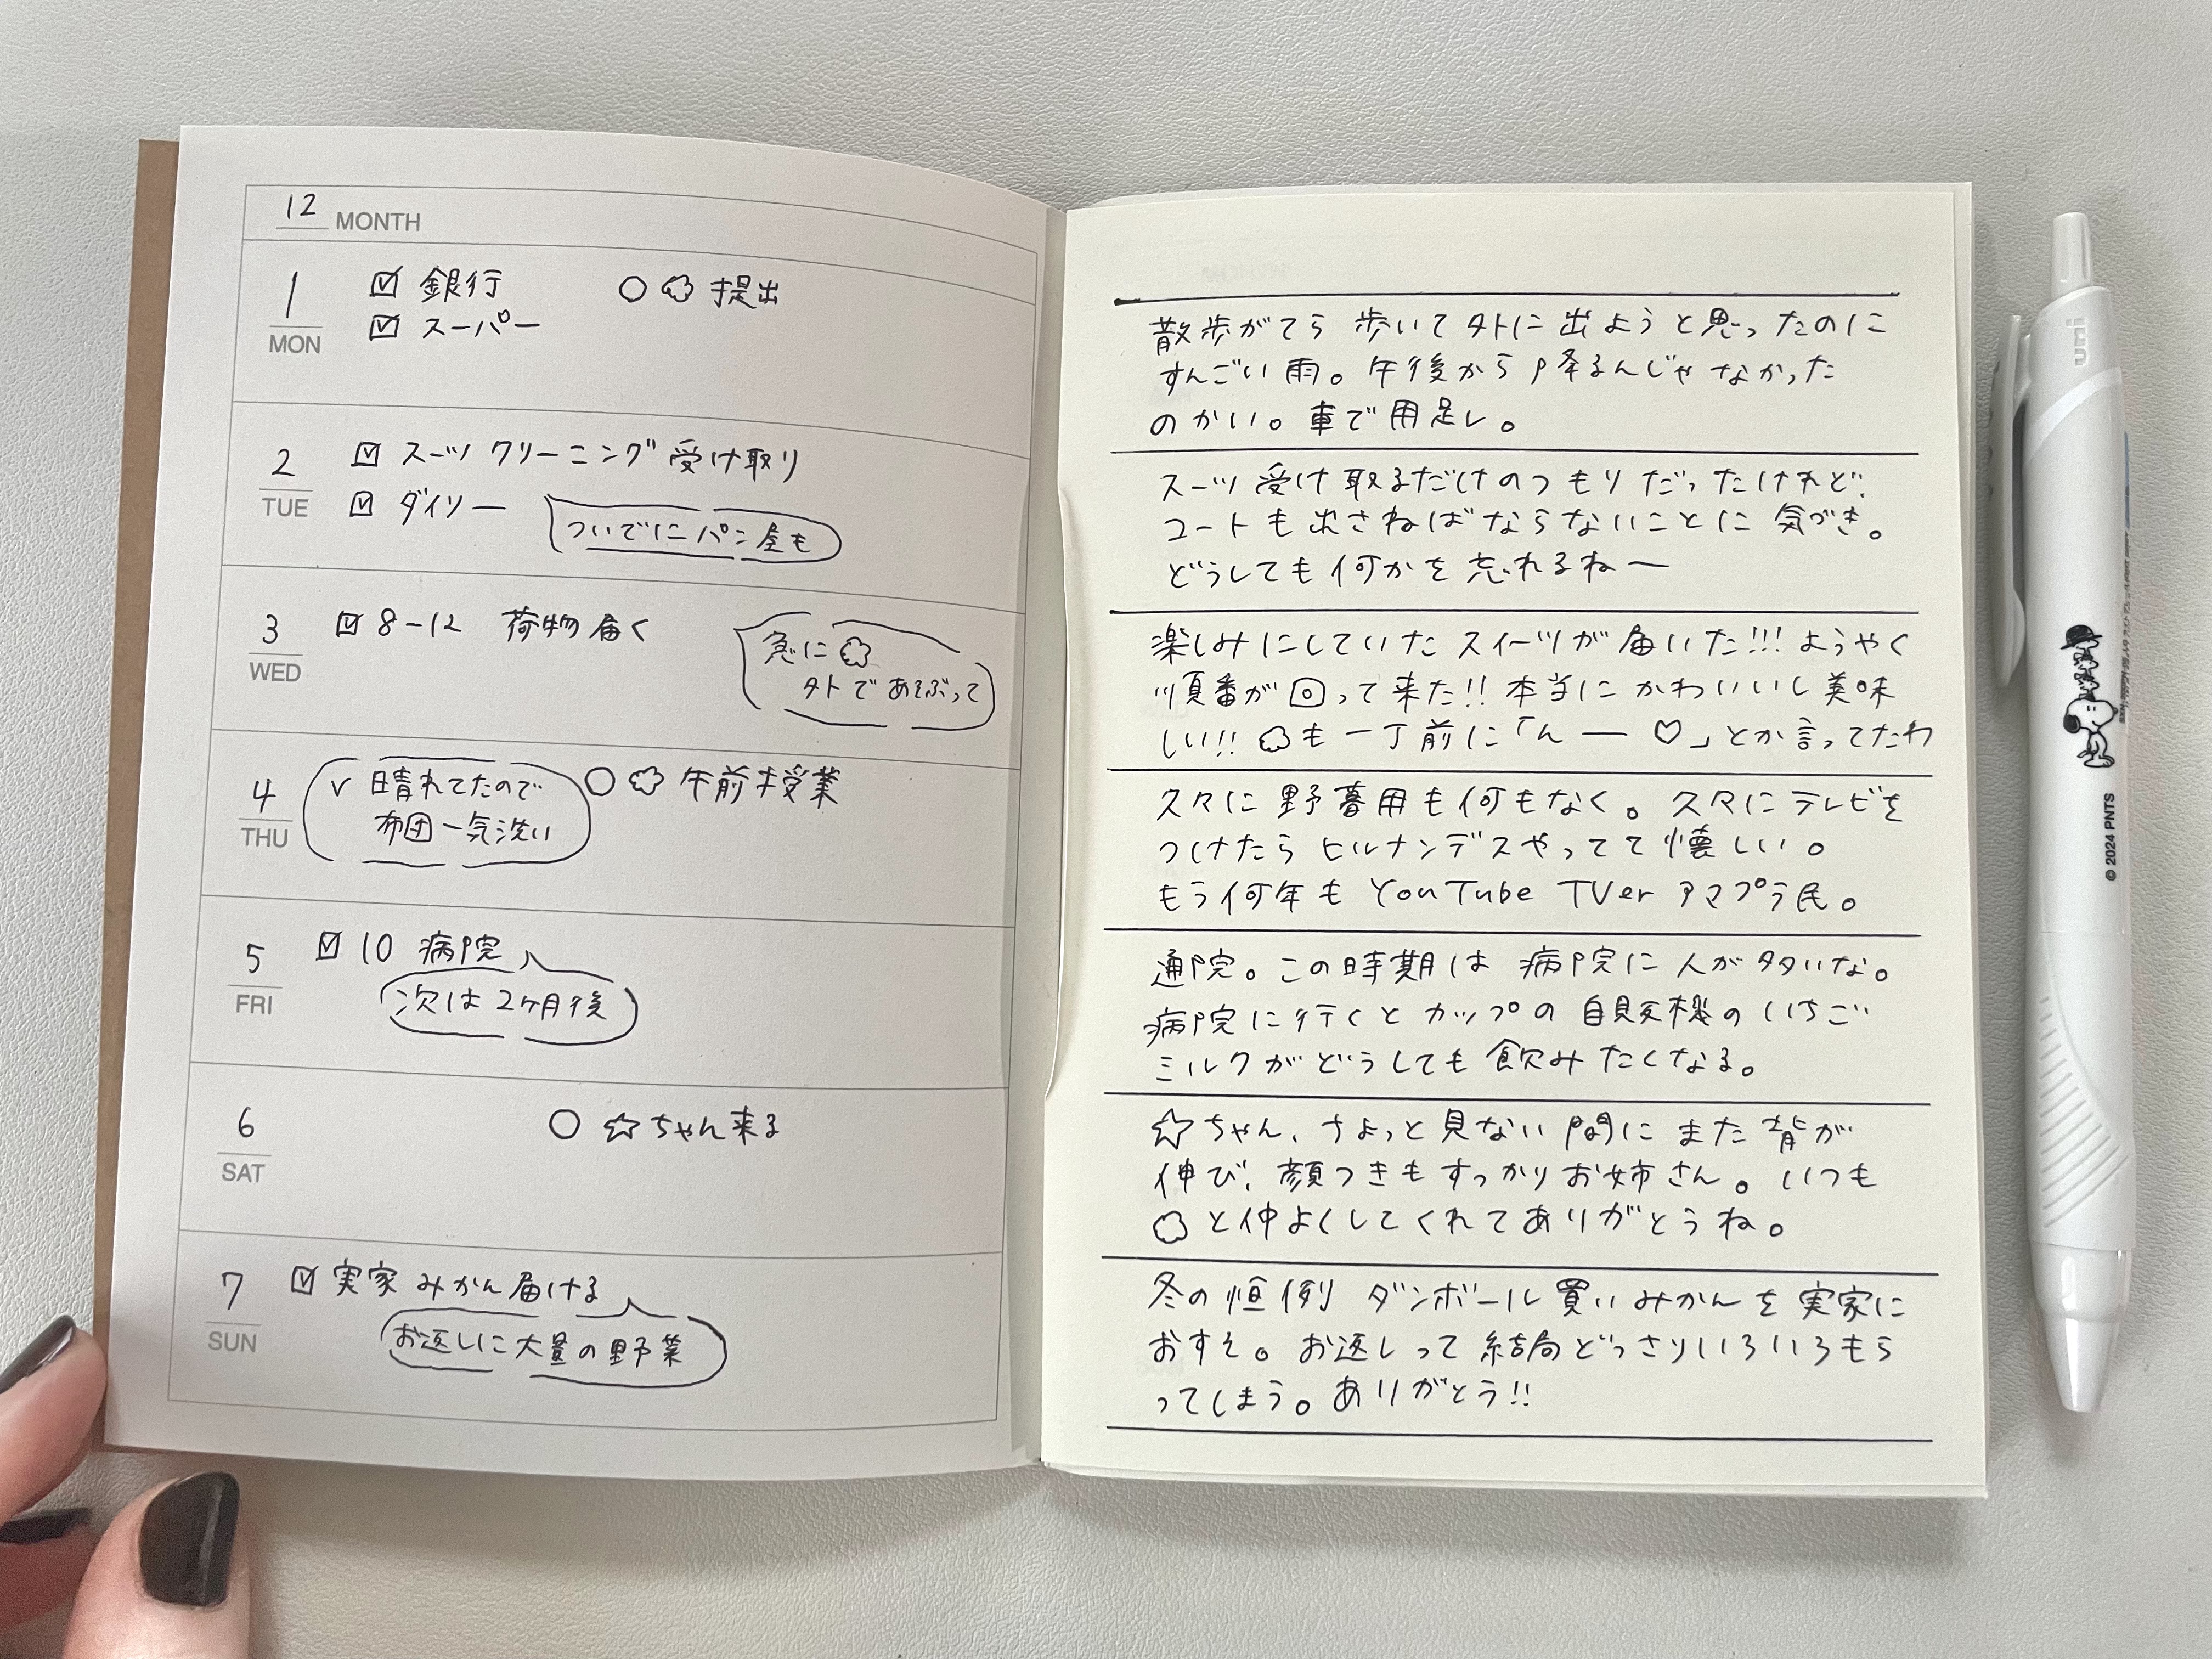 12 MONTH
1
MON
☑ 銀行
☑ スーパー
○ 提出
2
TUE
☑ スーツ クリーニング 受け取り
☑ ダイソー
ついでにパン屋も
3
WED
☑ 8-12 荷物届く
急に
外であそぶって
4
THU
✓ 晴れてたので
布団一気洗い
○ 午前授業
5
FRI
☑ 10 病院
次は2ヶ月後
6
SAT
○ ☆ちゃん来る
7
SUN
☑ 実家 みかん届ける
お返しに大量の野菜
散歩がてら 歩いて外に出ようと思ったのに
すんごい雨。午後から降るんじゃなかった
のかい。車で用足し。
スーツ受け取るだけのつもりだったけれど、
コートも出さねばならないことに気づき。
どうしても何かを忘れるねー
楽しみにしていたスイーツが届いた!!! ようやく
順番が回って来た!! 本当にかわいいし美味
しい!! も一丁前に「んー♡」とか言ってたわ
久々に野暮用も何もなく。久々にテレビを
つけたらヒルナンデスやってて懐しい。
もう何年も YouTube TVer アマプラ民。
通院。この時期は病院に人が多いな。
病院に行くとカップの自販機のいちご
ミルクがどうしても飲みたくなる。
☆ちゃん、ちょっと見ない間にまた背が
伸び、顔つきもすっかりお姉さん。いつも
と仲よくしてくれてありがとうね。
冬の恒例 ダンボール買いみかんを実家に
おすそ。お返しって結局どっさりいろいろもら
ってしまう。ありがとう!!
uni
© 2024 PNTS